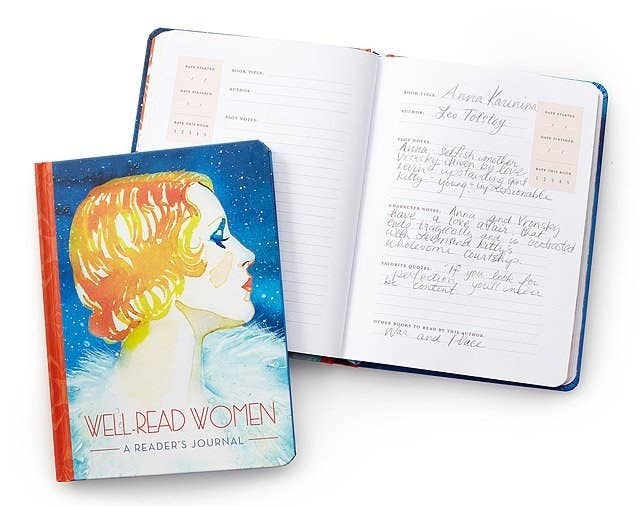 WELL-READ WOMEN
A READER'S JOURNAL
DATE STARTED
/ /
DATE FINISHED
/ /
RATE THIS BOOK
1 2 3 4 5
BOOK TITLE:
AUTHOR:
PLOT NOTES:
BOOK TITLE: Anna Karinina
AUTHOR: Leo Tolstoy
DATE STARTED
/ /
DATE FINISHED
/ /
RATE THIS BOOK
1 2 3 4 5
PLOT NOTES:
Anna - selfish mother
Vronsky driven by love
Levin upstanding and
Kitty - young + impressionable
CHARACTER NOTES: Anna and Vronsky
have a love affair that
ends tragically and is contrasted
with Levin and Kitty's
wholesome courtship.
FAVORITE QUOTES: If you look for
perfection you'll never
be content
OTHER BOOKS TO READ BY THIS AUTHOR:
War and Peace